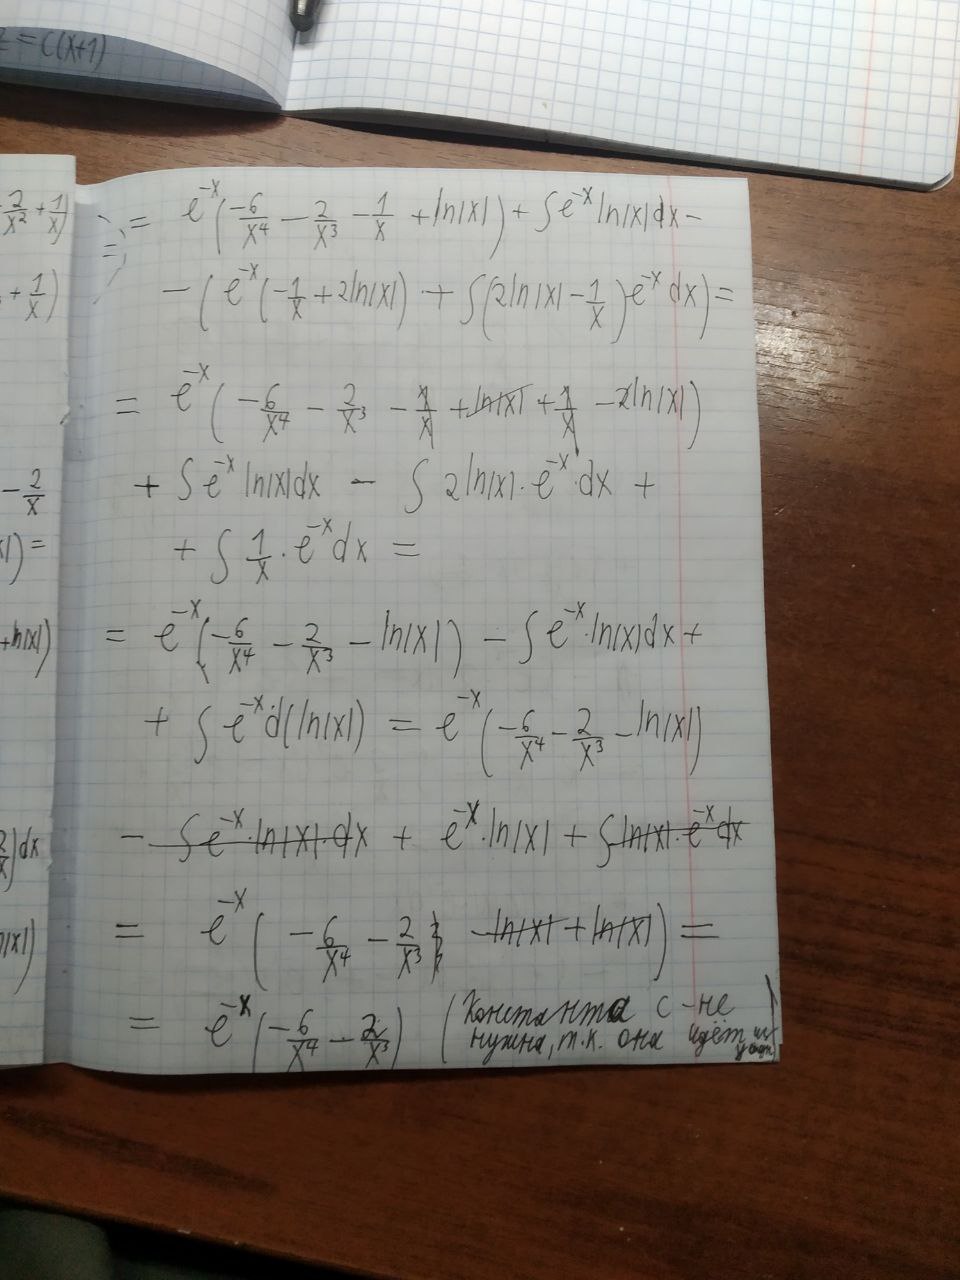 z = C(x+1)
= e^{-x}(-6/x^4 - 2/x^3 - 1/x + ln|x|) + ∫e^{-x} ln|x| dx -
- (e^{-x}(-1/x + 2ln|x|) + ∫(2ln|x| - 1/x)·e^{-x} dx) =
= e^{-x}(-6/x^4 - 2/x^3 - 1/x + ln|x| + 1/x - 2ln|x|)
+ ∫e^{-x} ln|x| dx - ∫ 2ln|x|·e^{-x}·dx +
+ ∫ 1/x · e^{-x} dx =
= e^{-x}(-6/x^4 - 2/x^3 - ln|x|) - ∫e^{-x}·ln|x| dx +
+ ∫ e^{-x} d(ln|x|) = e^{-x}(-6/x^4 - 2/x^3 - ln|x|)
- ∫e^{-x}·ln|x|·dx + e^{-x}·ln|x| + ∫ln|x|·e^{-x} dx
= e^{-x}(-6/x^4 - 2/x^3 - ln|x| + ln|x|) =
= e^{-x}(-6/x^4 - 2/x^3) (Константа C - не
нужна, т.к. она идёт
2/x^2 + 1/x)
+ 1/x)
- 2/x
|) =
+ln|x|)
2/x)dx
ln|x|)